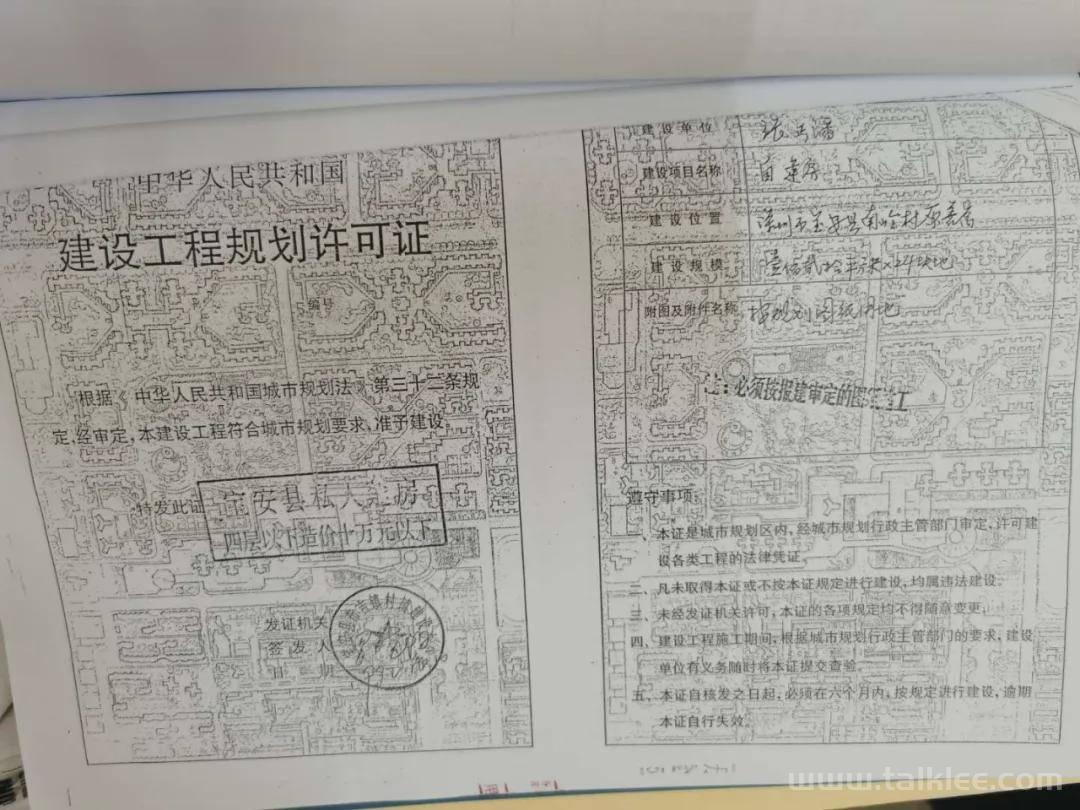 中华人民共和国
建设工程规划许可证
编号
根据《中华人民共和国城市规划法》第三十二条规
定,经审定,本建设工程符合城市规划要求,准予建设。
特发此证
宝安县私人建房
四层以下造价十万元以下
发证机关
签发人
日期
建设单位
建设项目名称
建设位置 深圳市宝安县南岭村
建设规模
附图及附件名称 按规划图纸用地
注:必须按报建审定的图施工
遵守事项:
一、本证是城市规划区内,经城市规划行政主管部门审定,许可建
设各类工程的法律凭证。
二、凡未取得本证或不按本证规定进行建设,均属违法建设。
三、未经发证机关许可,本证的各项规定均不得随意变更。
四、建设工程施工期间,根据城市规划行政主管部门的要求,建设
单位有义务随时将本证提交查验。
五、本证自核发之日起,必须在六个月内,按规定进行建设,逾期
本证自行失效。
www.talklee.com